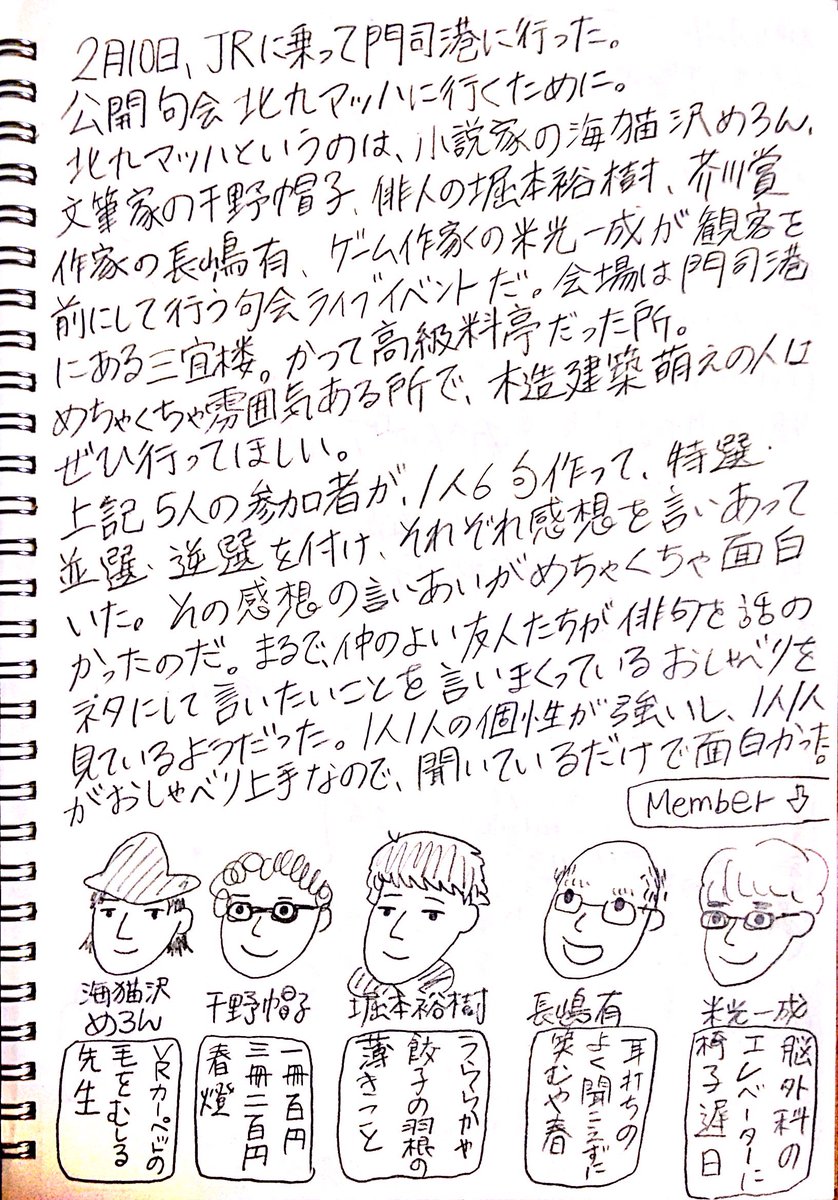 2月10日、JRに乗って門司港に行った。
公開句会 北九マッハに行くために。
北九マッハというのは、小説家の海猫沢めろん、
文筆家の千野帽子、俳人の堀本裕樹、芥川賞
作家の長嶋有、ゲーム作家の米光一成が観客を
前にして行う句会ライブイベントだ。会場は門司港
にある三宜楼。かつて高級料亭だった所。
めちゃくちゃ雰囲気ある所で、木造建築萌えの人は
ぜひ行ってほしい。
上記5人の参加者が、1人6句作って、特選・
並選・逆選を付け、それぞれ感想を言いあって
いた。その感想の言いあいがめちゃくちゃ面白
かったのだ。まるで、仲のよい友人たちが俳句を話の
ネタにして言いたいことを言いまくっているおしゃべりを
見ているようだった。1人1人の個性が強いし、1人1人
がおしゃべり上手なので、聞いているだけで面白かった。
Member⇩
海猫沢
めろん
千野帽子
堀本裕樹
長嶋有
米光一成
VRカーペットの
毛をむしる
先生
一冊百円
三冊二百円
春燈
うららかや
餃子の羽根の
薄きこと
耳打ちの
よく聞こえずに
笑むや春
脳外科の
エレベーターに
椅子遅日